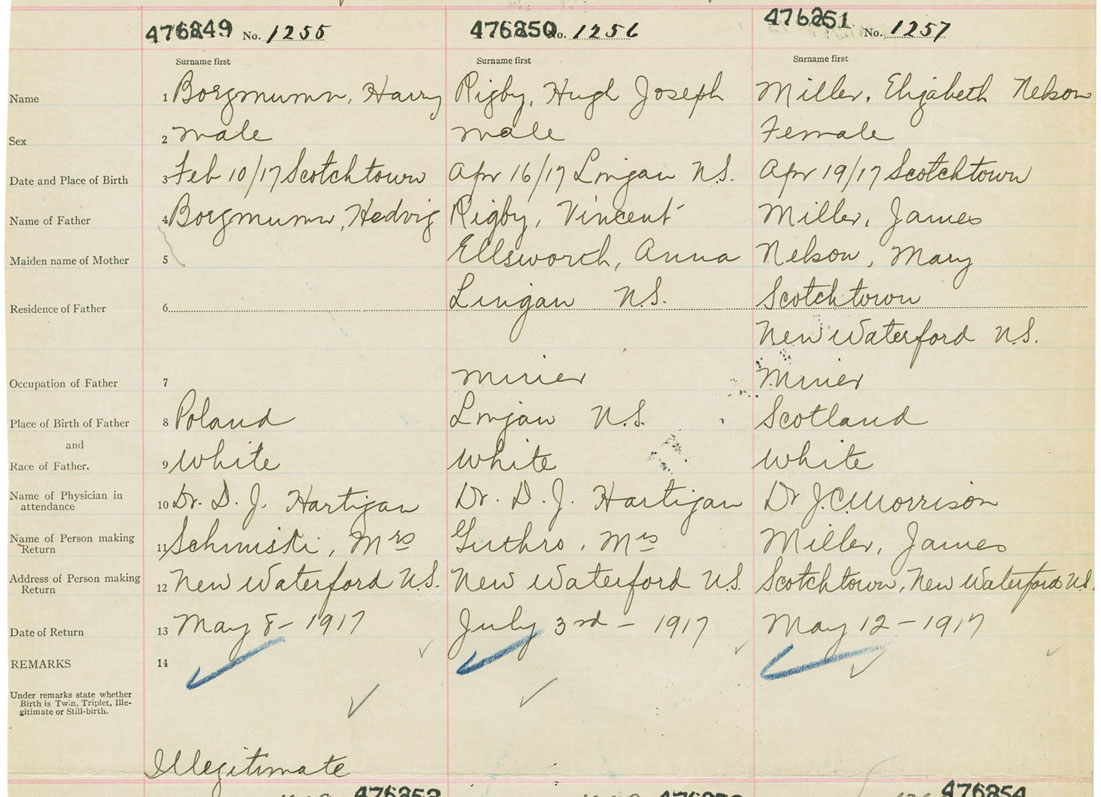 476249 No. 1255 476250 No. 1256 476251 No. 1257
Surname first Surname first Surname first
Name 1 Borgmumn, Harry Rigby, Hugh Joseph Miller, Elizabeth Nelson
Sex 2 male male Female
Date and Place of Birth 3 Feb 10/17 Scotchtown Apr 16/17 Lingan N.S. Apr 19/17 Scotchtown
Name of Father 4 Borgmumn, Hedvig Rigby, Vincent Miller, James
Maiden name of Mother 5 Ellsworth, Anna Nelson, Mary
Residence of Father 6 Lingan N.S. Scotchtown
New Waterford N.S.
Occupation of Father 7 Miner Miner
Place of Birth of Father 8 Poland Lingan N.S. Scotland
and
Race of Father. 9 White White White
Name of Physician in
attendance 10 Dr. D. J. Hartigan Dr. D. J. Hartigan Dr J.C. Morrison
Name of Person making
Return 11 Schmiski, Mrs Guthro, Mrs Miller, James
Address of Person making
Return 12 New Waterford N.S. New Waterford N.S. Scotchtown, New Waterford N.S.
Date of Return 13 May 8 - 1917 July 3rd - 1917 May 12 - 1917
REMARKS 14
Under remarks state whether
Birth is Twin, Triplet, Ille-
gitimate or Still-birth.
Illegitimate